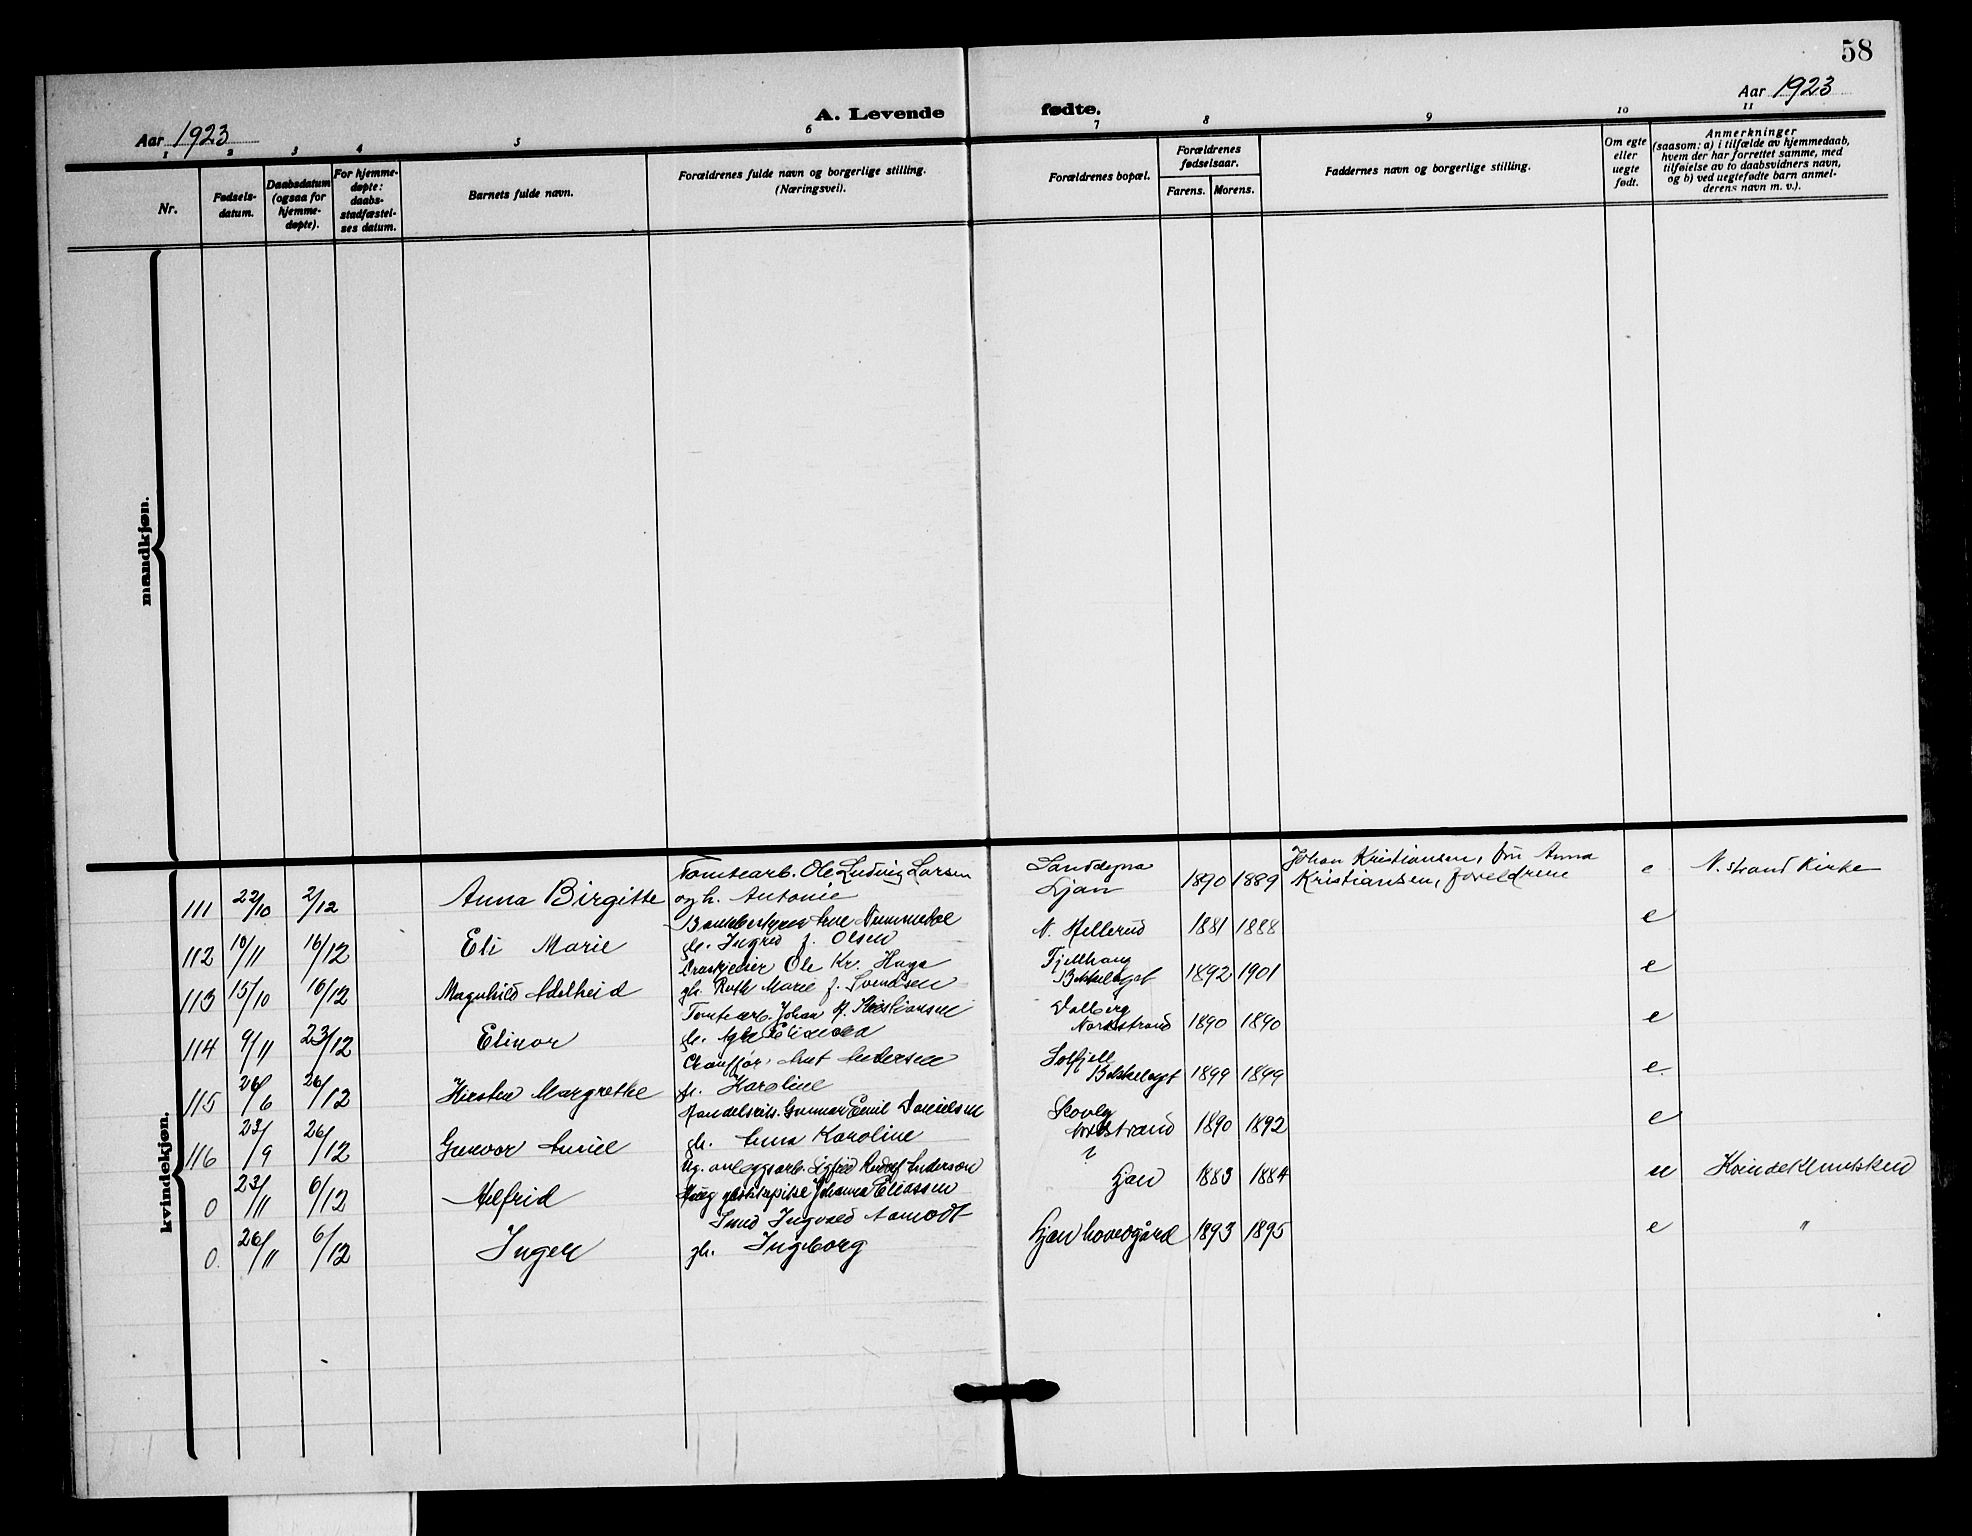 58
Aar 1923
A. Levende fødte.
Aar 1923
1 2 3 4 5 6 7 8 9 10 11
Nr.
Fødsels-
datum.
Daabsdatum
(ogsaa for
hjemme-
døpte).
For hjemme-
døpte:
daabs-
stadfæstel-
ses datum.
Barnets fulde navn.
Forældrenes fulde navn og borgerlige stilling.
(Næringsvei).
Forældrenes bopæl.
Forældrenes
fødselsaar.
Farens. Morens.
Faddernes navn og borgerlige stilling.
Om egte
eller
uegte
født.
Anmerkninger
(saasom: a) i tilfælde av hjemmedaab,
hvem der har forrettet samme, med
tilføielse av to daabsvidners navn,
og b) ved uegtefødte barn anmel-
derens navn m. v.).
mandkjøn.
kvindekjøn.
Tomtearb. Ole Ludvig Larsen Johan Kristiansen, Anna
111 22/10 2/12 Anna Birgitte og h. Antonie Ljan 1890 1889 Kristiansen, foreldrene e N. strand Kirke
112 10/11 16/12 Eli Marie gh. Ingrid f. Olsen N. Hellerud 1881 1888 e
Ole Kr. Haga Fjellhaug
113 15/10 16/12 Magnhild Adelheid gh. Ruth Marie f. Svendsen Bekkelaget 1892 1901 e
Tomtearb. Johan Kristiansen Dalberg
114 9/11 23/12 Elinor Nordstrand 1890 1890 e
Chauffør Andersen Solfjell
115 26/6 26/12 Kirsten Margrethe gh. Karoline Bekkelaget 1899 1899 e.
Handelsreis. Gunnar Emil Danielsen
116 23/9 26/12 Gunvor gh. Anna Karoline Nordstrand 1890 1892 e
Ug. anleggsarb. Sigfrid Rudolf Anderson ?
0 23/11 6/12 Alfrid Johanna Eliassen Ljan 1883 1884 u Kvindeklinikken
Smed Ingvald Aamodt
0. 26/11 6/12 Inger gh. Ingeborg Ljan hovedgård 1893 1895 e "